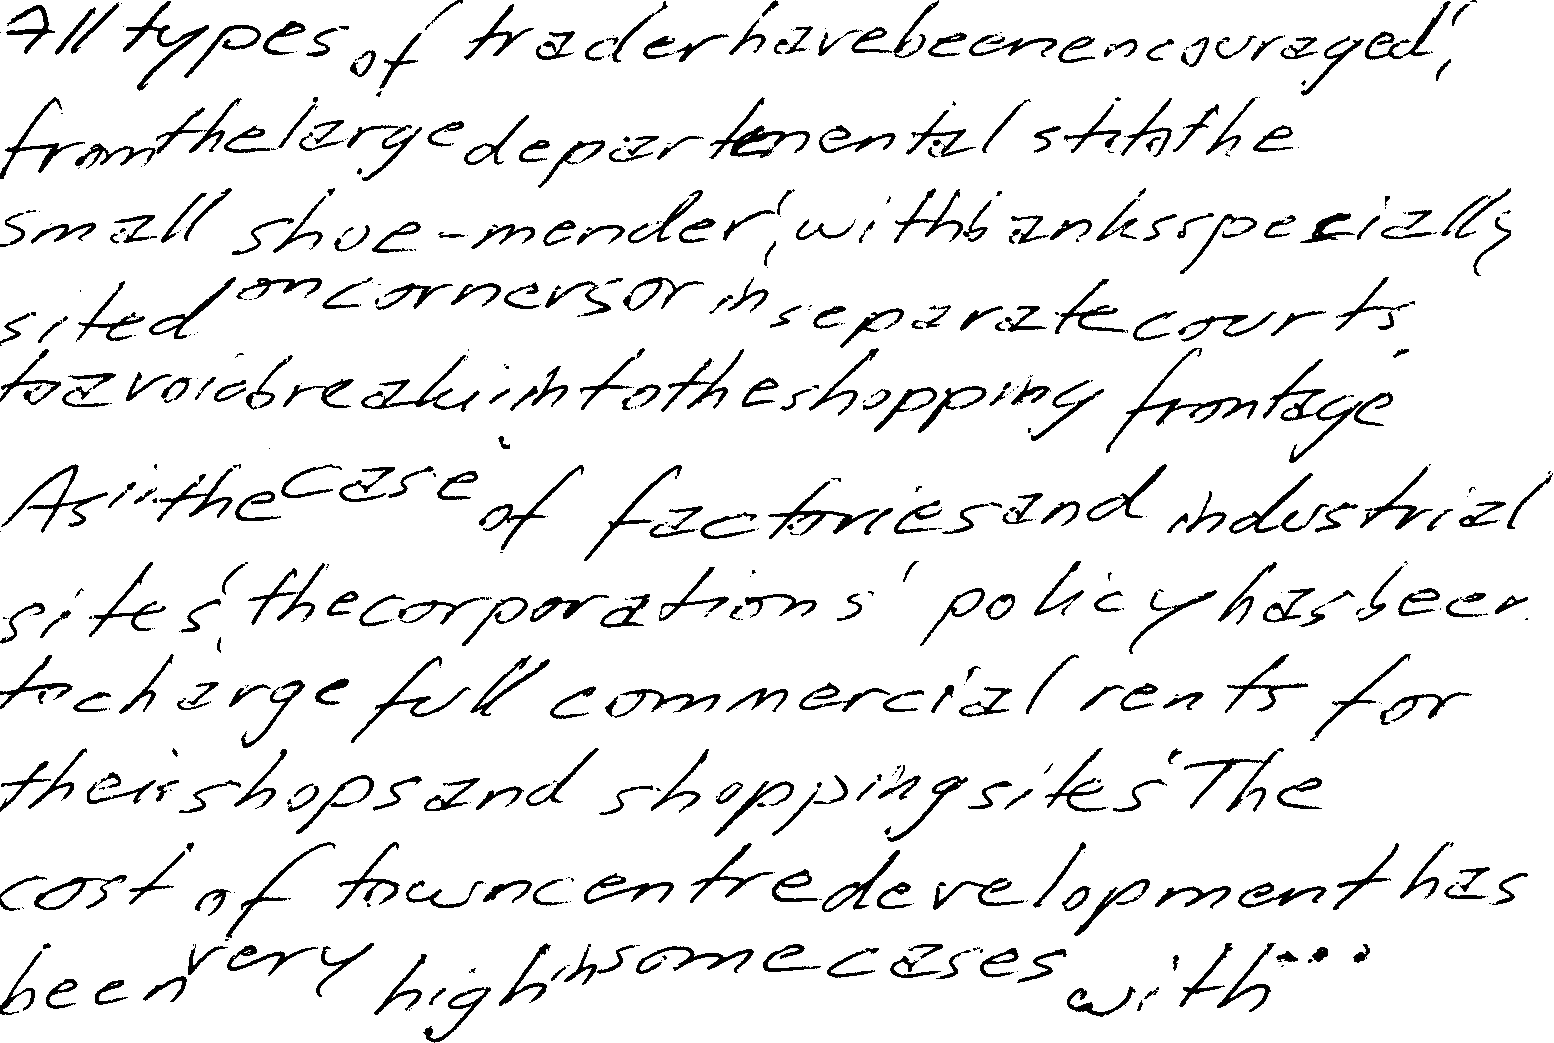 All types of trader have been encouraged,
from the large departmental st to the
small shoe-mender, with banks specially
sited on corners or in separate courts
to avoid break in to the shopping frontage.
As in the case of factories and industrial
sites, the corporations' policy has been
to charge full commercial rents for
their shops and shopping sites. The
cost of town centre development has
been very high in some cases with...